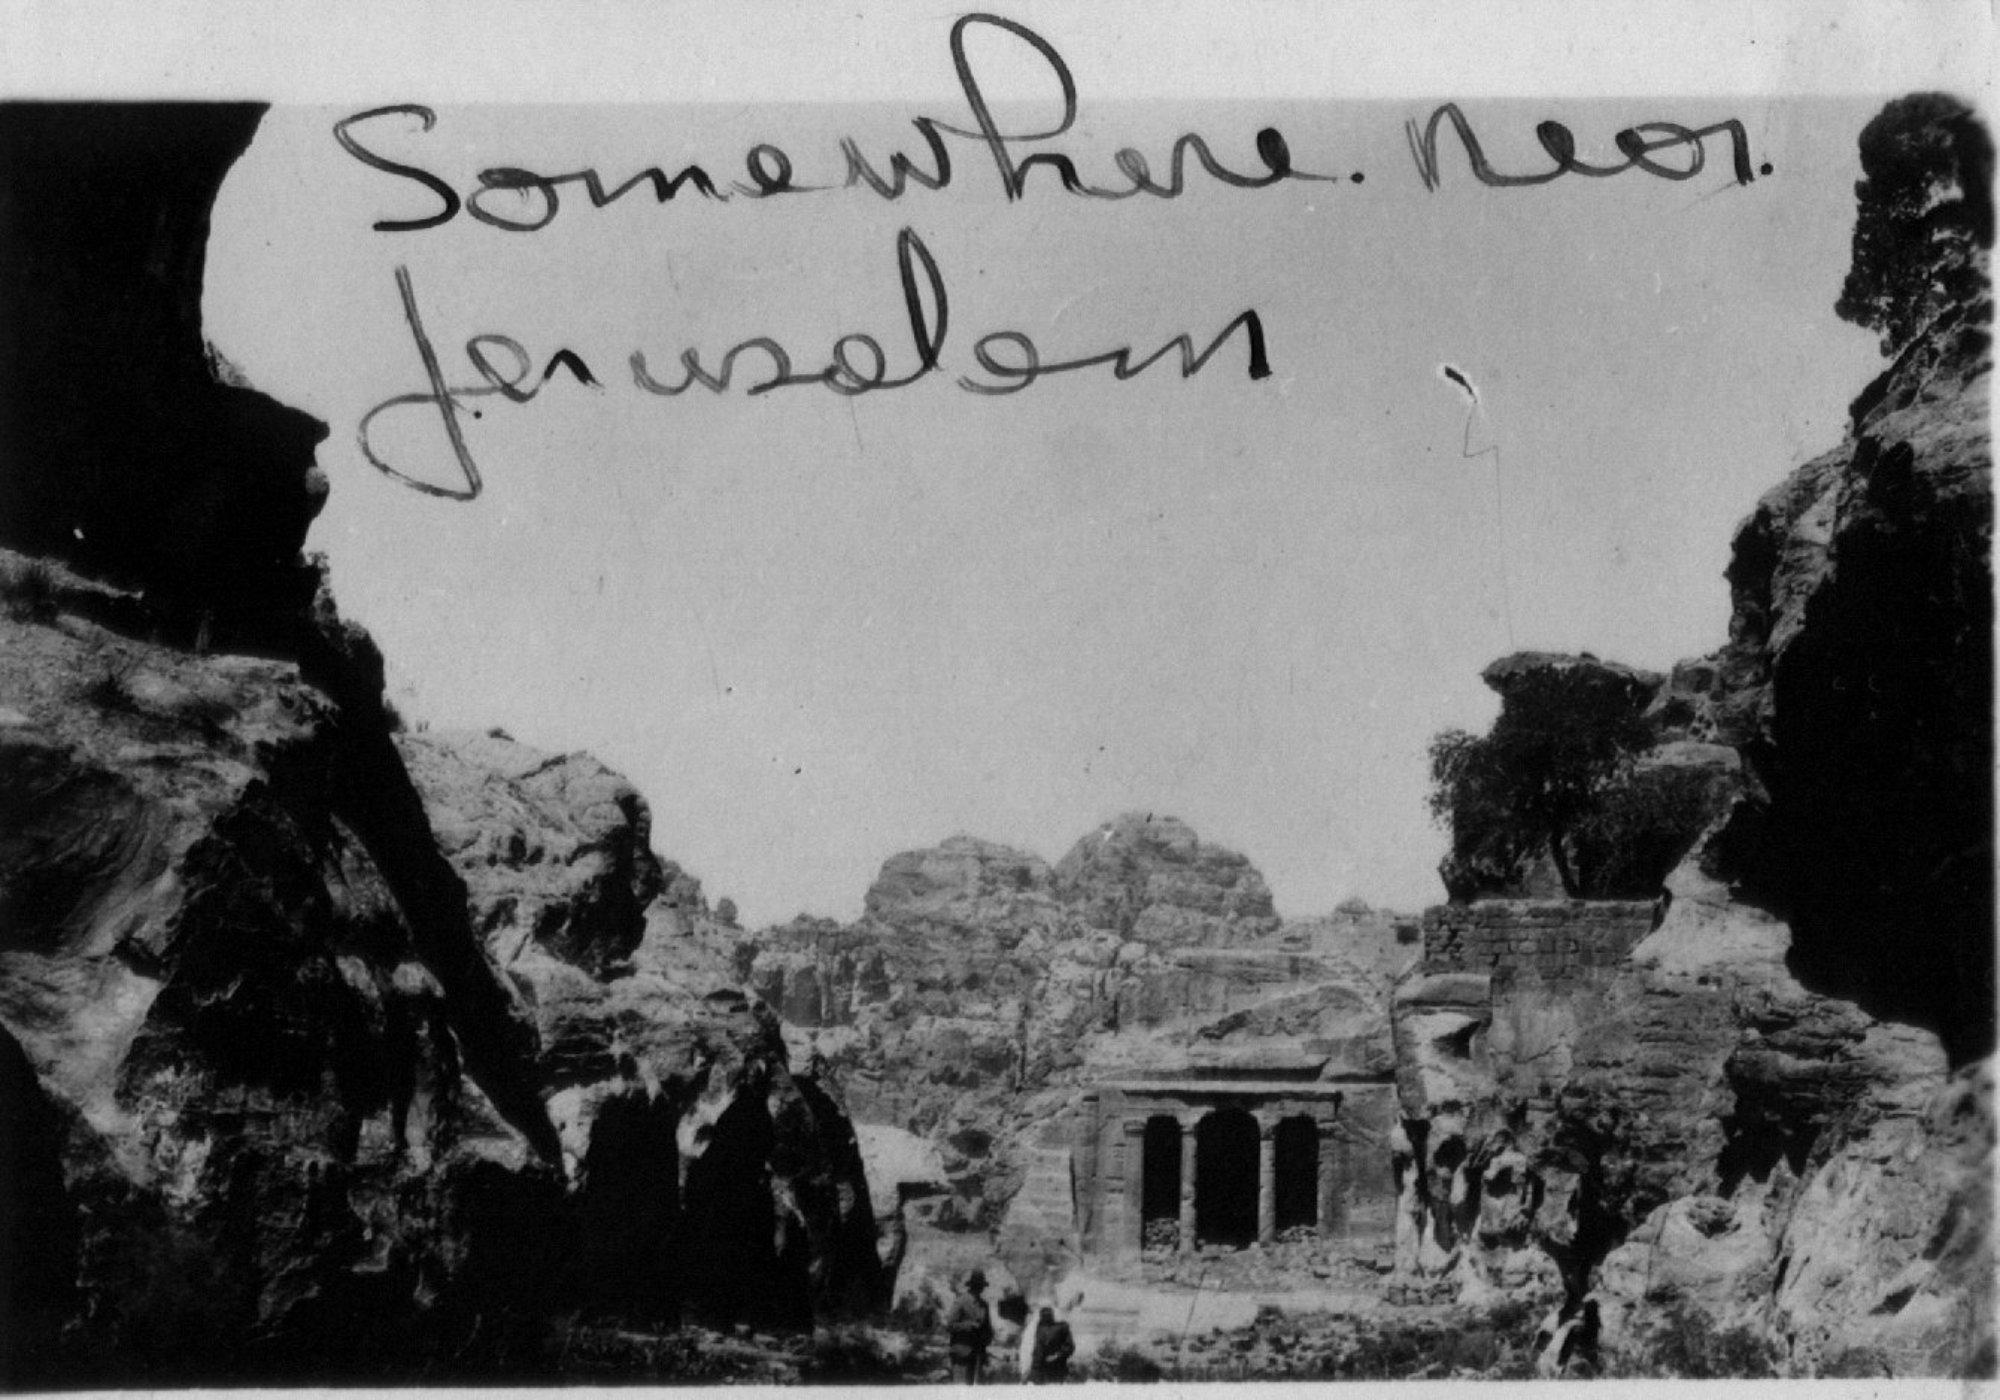 Somewhere. near.
Jerusalem